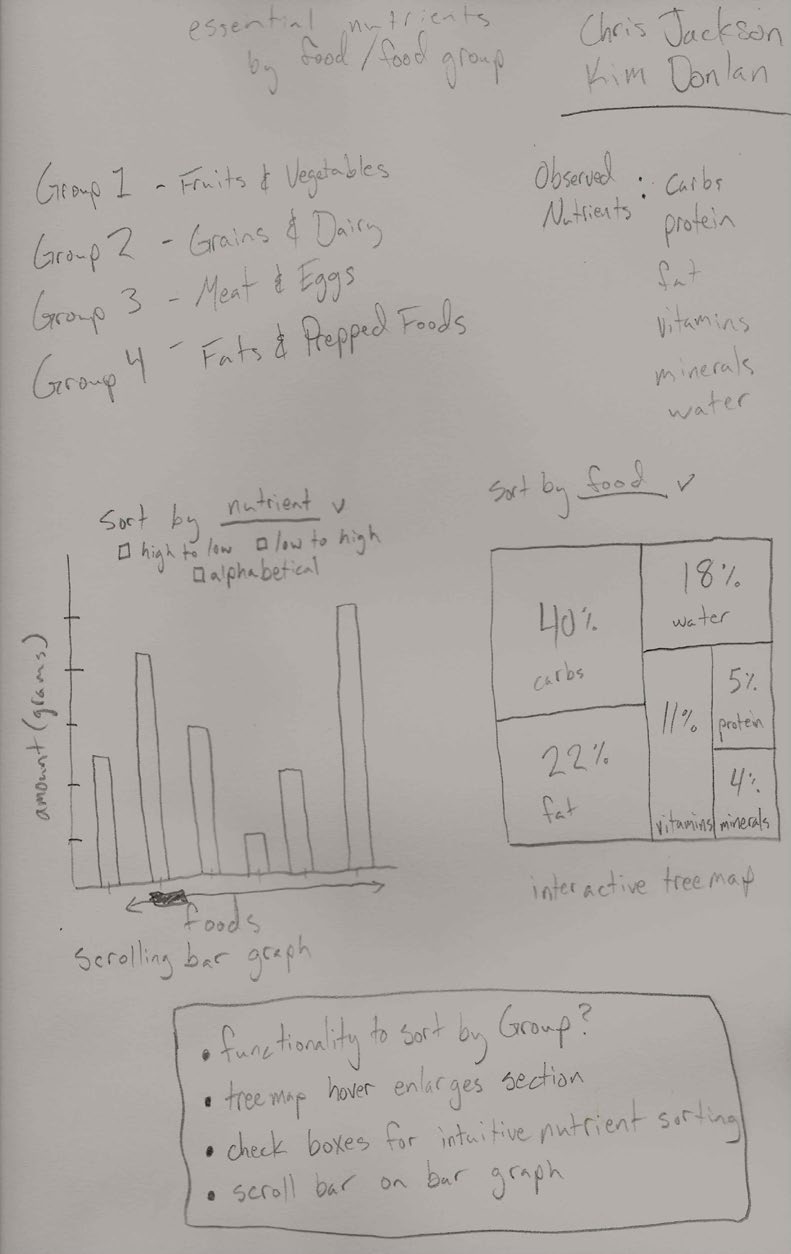 essential nutrients
by food/food group
Chris Jackson
Kim Donlan
Group 1 - Fruits & Vegetables
Group 2 - Grains & Dairy
Group 3 - Meat & Eggs
Group 4 - Fats & Prepped Foods
Observed
Nutrients :
carbs
protein
fat
vitamins
minerals
water
Sort by nutrient v
high to low low to high
alphabetical
amount (grams)
foods
scrolling bar graph
sort by food v
40%
carbs
18%
water
22%
fat
11%
vitamins
5%
protein
4%
minerals
interactive treemap
• functionality to sort by Group?
• treemap hover enlarges section
• check boxes for intuitive nutrient sorting
• scroll bar on bar graph